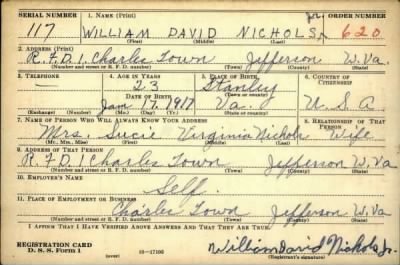 SERIAL NUMBER 1. NAME (Print) ORDER NUMBER
117 WILLIAM DAVID NICHOLS Jr. 620
(First) (Middle) (Last)
2. ADDRESS (Print)
R.F.D.1. Charles Town Jefferson W.Va.
(Number and street or R. F. D. number) (Town) (County) (State)
3. TELEPHONE 4. AGE IN YEARS 5. PLACE OF BIRTH 6. COUNTRY OF CITIZENSHIP
23 Stanley
DATE OF BIRTH (Town or county)
Jan 17. 1917 Va. U.S.A
(Exchange) (Number) (Mo.) (Day) (Yr.) (State or country)
7. NAME OF PERSON WHO WILL ALWAYS KNOW YOUR ADDRESS 8. RELATIONSHIP OF THAT PERSON
Mrs. Virginia Nichols Wife
(Mr., Mrs., Miss) (First) (Middle) (Last)
9. ADDRESS OF THAT PERSON
R.F.D.1 Charles Town Jefferson W.Va
(Number and street or R. F. D. number) (Town) (County) (State)
10. EMPLOYER'S NAME
Self.
11. PLACE OF EMPLOYMENT OR BUSINESS
Charles Town Jefferson W.Va
(Number and street or R. F. D. number) (Town) (County) (State)
I AFFIRM THAT I HAVE VERIFIED ABOVE ANSWERS AND THAT THEY ARE TRUE.
REGISTRATION CARD
D. S. S. Form 1 (over) 16—17105 William David Nichols Jr.
(Registrant's signature)